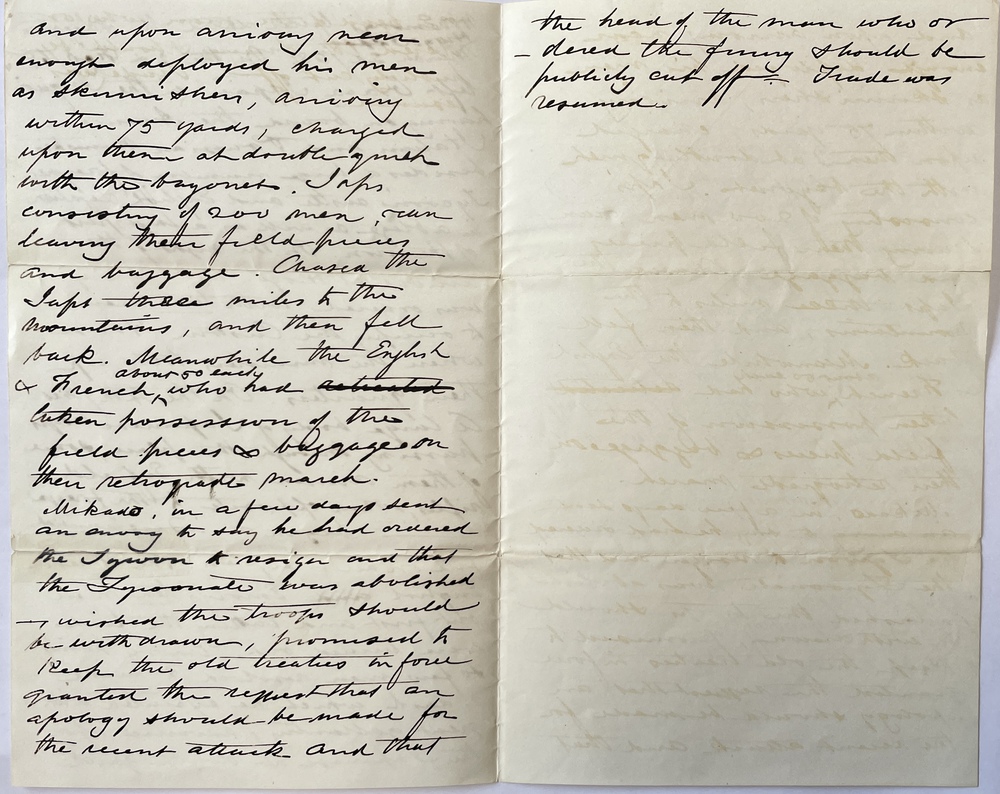 and upon arriving near
enough deployed his men
as skirmishers, arriving
within 75 yards, charged
upon them at double quick
with the bayonet. Japs
consisting of 200 men, ran
leaving their field pieces
and baggage. Chased the
Japs three miles to the
mountains, and then fell
back. Meanwhile the English
about 50 each
& French, who had
taken possession of the
field pieces & baggage on
their retrograde march.
Mikado, in a few days sent
an envoy to say he had ordered
the Tycoon to resign and that
the Tycoonate was abolished
— wished the troops should
be withdrawn, promised to
keep the old treaties in force
granted the request that an
apology should be made for
the recent attack and that
the head of the man who or
- dered the firing should be
publicly cut off = Trade was
resumed.